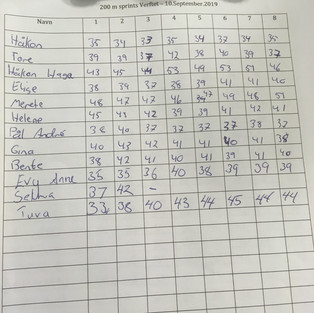 200 m sprints Verftet – 10.September.2019
Navn 1 2 3 4 5 6 7 8
Håkon 35 34 33 35 34 37 34 35
Tore 39 39 37 42 38 40 39 37
Håkon Hauga 43 45 44 53 49 53 51 46
Elise 38 39 37 38 39 41 41 40
Merete 48 47 47 46 49 48 51
Helene 45 43 42 39 39 41 42 41
Pål André 38 40 37 37 37 37 38 37
Gina 40 43 42 41 41 40 41 38
Bente 38 42 41 40 41 39 41 40
Evy Anne 35 35 36 40 38 39 39 39
37 42 –
Tuva 33 38 40 43 44 45 44 44